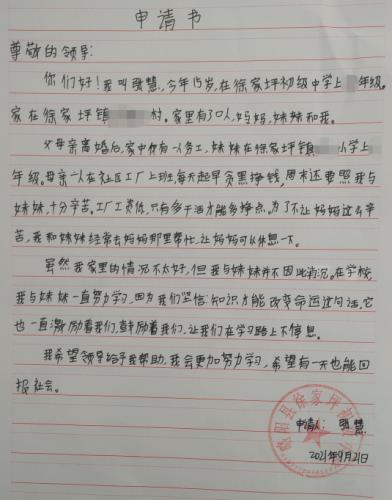 申请书
尊敬的领导:
你们好!我叫张慧,今年15岁,在徐家坪初级中学上 年级。
家在徐家坪镇 村。家里有了口人,妈妈,妹妹和我。
父母亲离婚后,家中仅有一人务工,妹妹在徐家坪镇 小学上
年级。母亲一人在社区工厂上班,每天起早贪黑挣钱,周末还要照我与
妹妹,十分辛苦。工厂工资低,只有多干活才能多挣点。为了不让妈妈这么辛
苦,我和妹妹经常去妈妈那里帮忙,让妈妈可以休息一下。
虽然我家里的情况不太好,但我与妹妹并不因此消沉。在学校,
我与妹妹一直努力学习,因为我们坚信:知识才能改变命运这句话。它
也一直激励着我们,鼓励着我们,让我们在学习路上不停息。
我希望领导给予我帮助,我会更加努力学习,希望有一天也能回
报社会。
申请人: 张慧
2021年9月21日
略阳县徐家坪初级中学